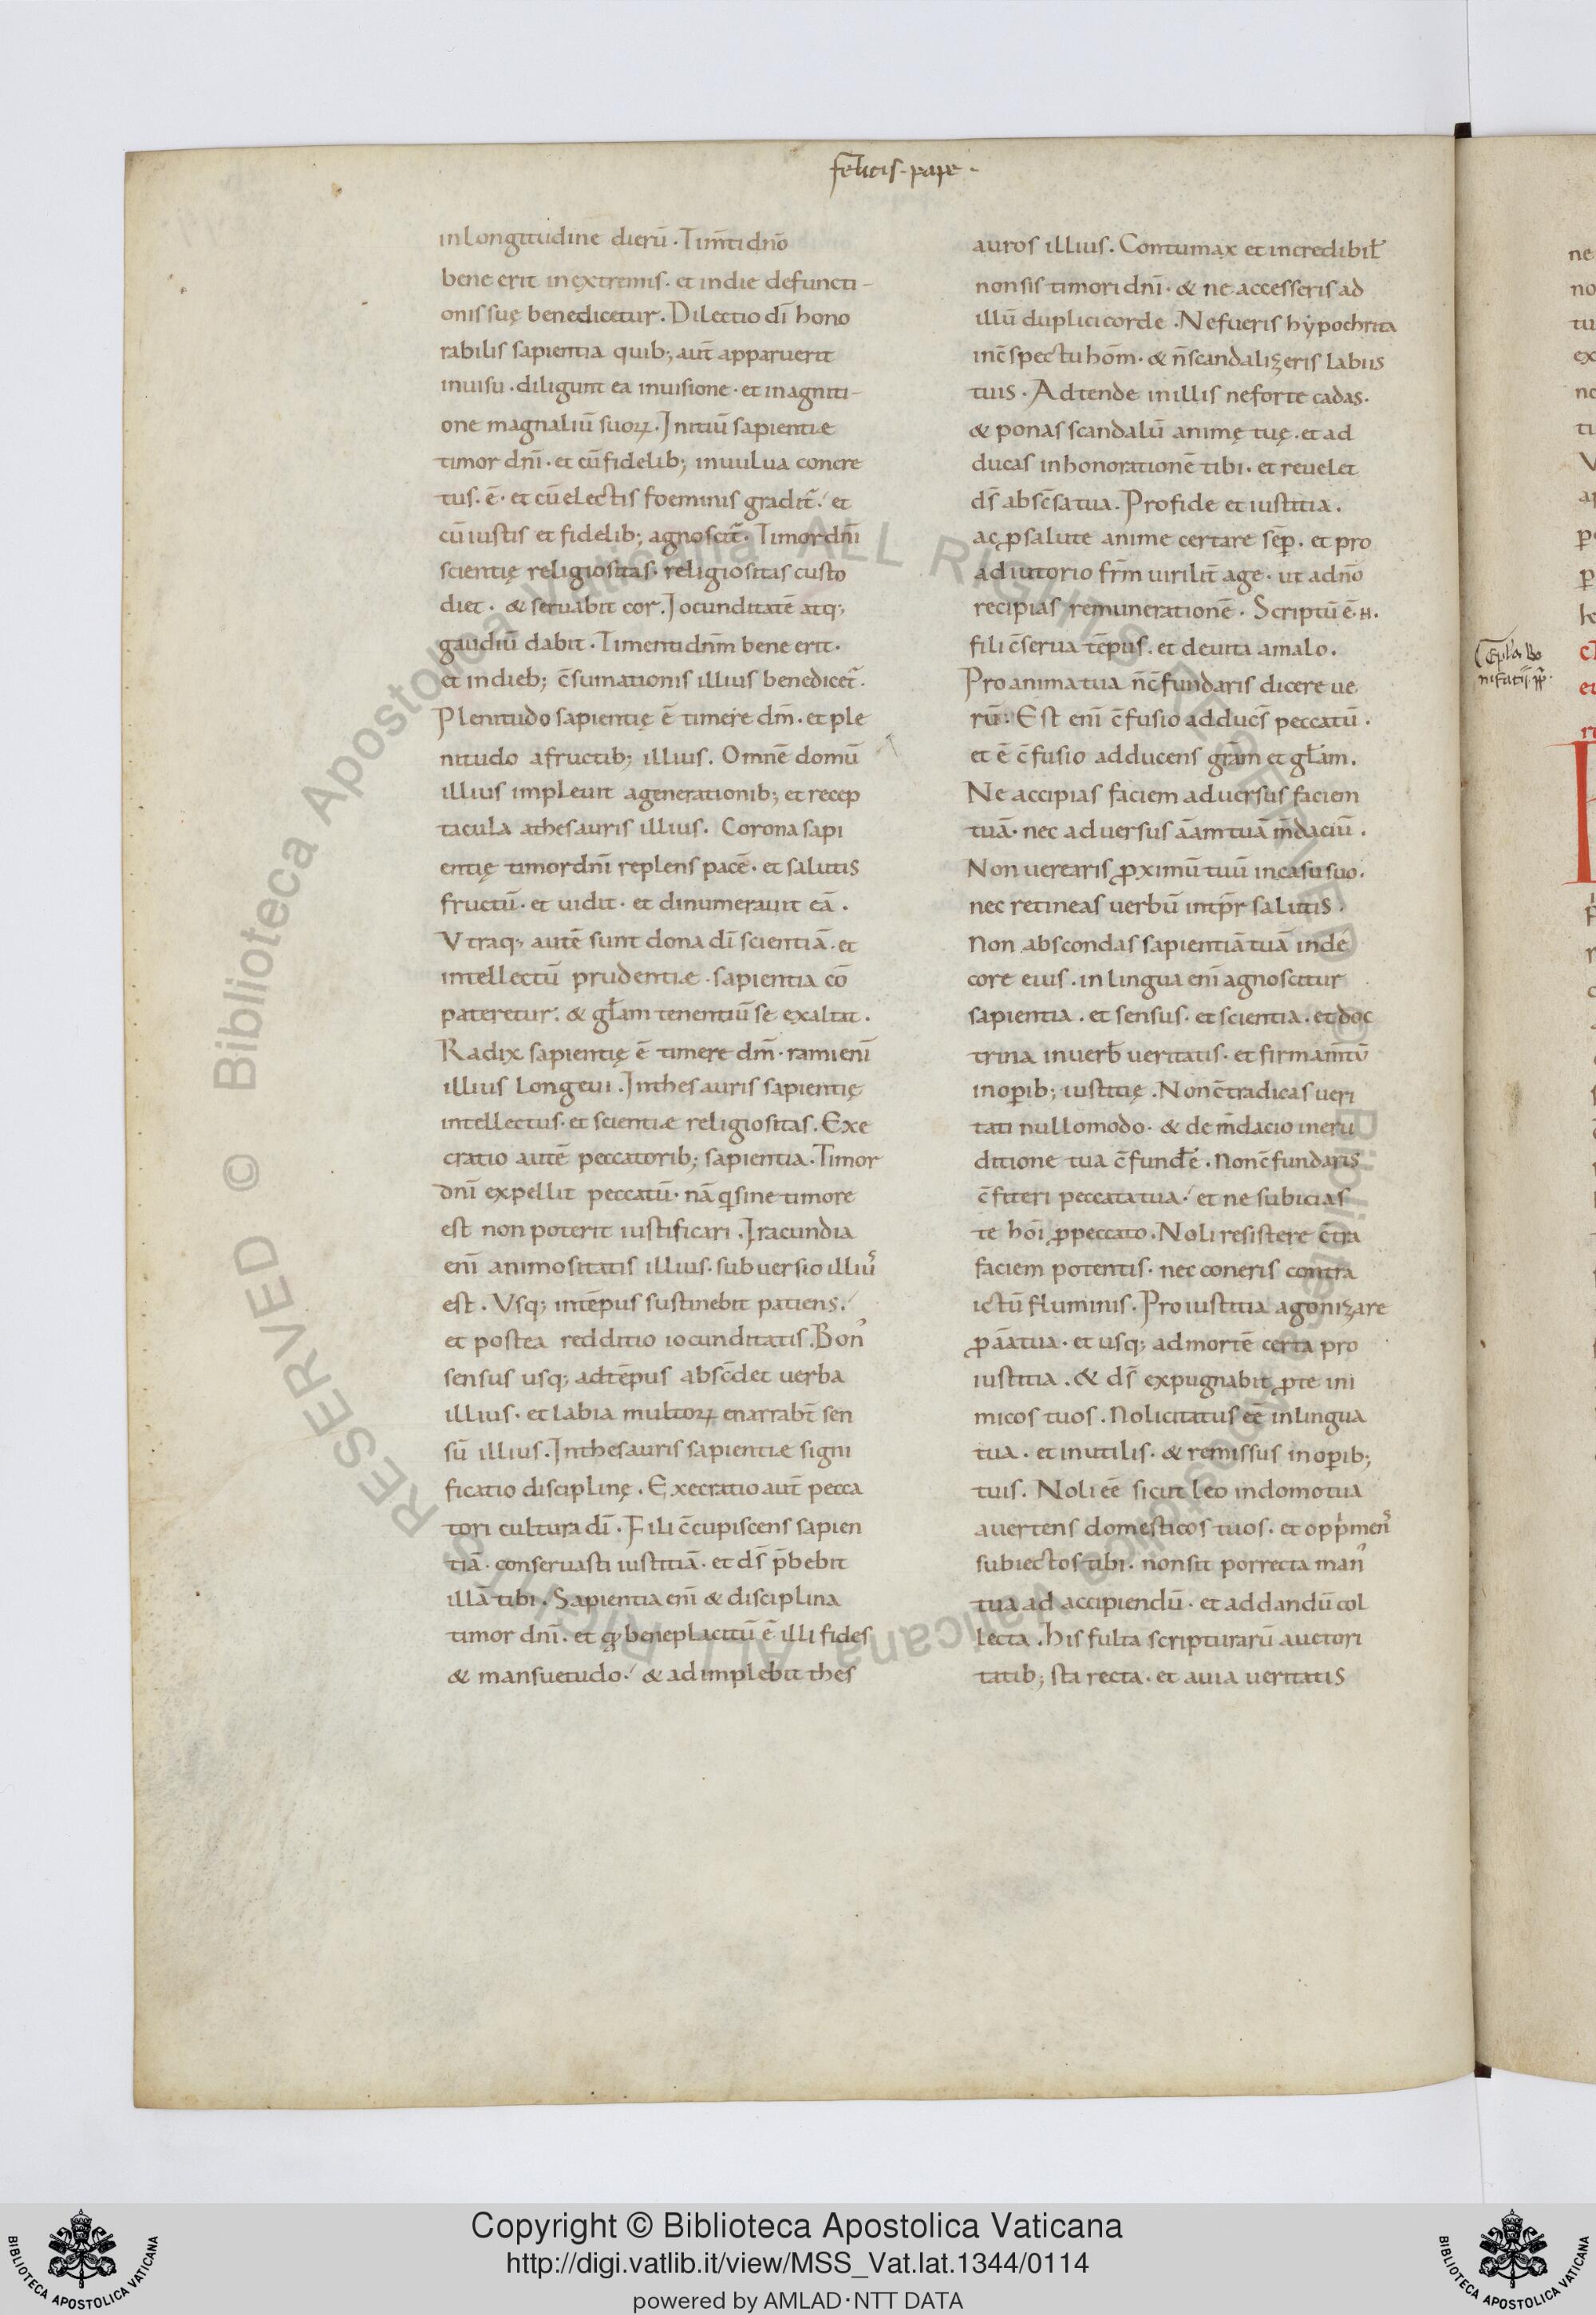 felicis·pape·
inlongitudine dierū·Tim̄ti dn̄o
bene erit inextremis·et indie defuncti-
onis suę benedicetur.Dilectio dī hono
rabilis sapientia quib;aut̄ apparuerit
inuisu·diligunt ea inuisione·et inagniti-
one magnaliū suoꝝ·Initiū sapientiae
timor dn̄i·et cū fidelib; inuulua concre
tus·ē·et cū electis foeminis gradit̄·et
cū iustis et fidelib; agnoscit̄·Timor dn̄i
scientię religiositas·religiositas custo
diet·& seruabit cor.Iocunditatē atq;
gaudiū dabit·Timenti dn̄m bene erit·
et indieb; c̄sumationis illius benedicet̄·
Plenitudo sapientię ē timere dm̄·et ple
nitudo afructib; illius. Omnē domū
illius impleuit agenerationib; et recep
tacula athesauris illius. Corona sapi
entię timor dn̄i replens pacē·et salutis
fructū·et uidit·et dinumerauit eā·
Vtraq; autē sunt dona dī scientiā·et
intellectū prudentiae·sapientia cō
pateretur·& gl̄am tenentiū se exaltat.
Radix sapientię ē timere dm̄·rami enī
illius longeui.Inthesauris sapientię
intellectus·et scientiae religiositas.Exe
cratio autē peccatorib; sapientia·Timor
dn̄i expellit peccatū·nā ꝗ sine timore
est non poterit iustificari.Iracundia
enī animositatis illius·subuersio illiuˀ
est.Vsq; intēpus sustinebit patiens.
et postea redditio iocunditatis.Bonˀ
sensus usq; adtēpus absc̄det uerba
illius·et labia multoꝝ enarrabt̄ sen
sū illius.Inthesauris sapientiae signi
ficatio disciplinę.Execratio aut̄ pecca
tori cultura dī·Fili c̄cupiscens sapien
tiā·conseruasti iustitiā·et ds̄ p̄bebit
illā tibi·Sapientia enī & disciplina
timor dn̄i·et ꝙ beneplacitū ē illi fides
& mansuetudo·& adimplebit thes
auros illius.Contumax et incredibil̄
non sis timori dn̄i·& ne accesseris ad
illū duplici corde.Nefueris hẏpochrita
inc̄spectu hom̄·& n̄scandalizeris labiis
tuis·Adtende inillis neforte cadas·
& ponas scandalū animę tuę·et ad
ducas inhonorationē tibi·et reuelet
ds̄ absc̄sa tua.Profide et iustitia.
ac ꝓ salute anime certare sēp̄·et pro
adiutorio frm̄ uirilit̄ age·ut adn̄o
recipias remunerationē·Scriptū ē·H.
fili c̄serua tēpus·et deuita amalo.
Proanima tua n̄c̄fundaris dicere ue
rū·Est enī c̄fusio adducēs peccatū.
et ē c̄fusio adducens grām et gl̄am.
Ne accipias faciem aduersus faciem
tuā·nec aduersus āam tuā m̄daciū.
Non uerearis ꝓximū tuū incasu suo.
nec retineas uerbū intp̄r salutis.
Non abscondas sapientiā tuā inde
core eius.inlingua enī agnoscitur
sapientia·et sensus·et scientia·et doc
trina inuerb̄ ueritatis·et firmam̄tū
inoꝑib; iustitię.Nonc̄tradicas ueri
tati nullomodo·& de m̄dacio ineru
ditione tua c̄fundēˀ.Nonc̄fundaris
c̄fiteri peccata tua·et ne subicias
te hoī ꝓpeccato.Noli resistere c̄tra
faciem potentis·nec coneris contra
ictū fluminis.Proiustitia agonizare
ꝓ āa tua·et usq; admortē certa pro
iustitia.& ds̄ expugnabit ꝓte ini
micos tuos.Noli citatus eē inlingua
tua·et inutilis·& remissus inoꝑib;
tuis.Noli eē sicut leo indomo tua
auertens domesticos tuos·et opp̄menˀ
subiectos tibi·non sit porrecta manˀ
tua ad accipiendū·et addandū col
lecta.His fulta scripturarū auctori
tatib; sta recta·et auia ueritatis